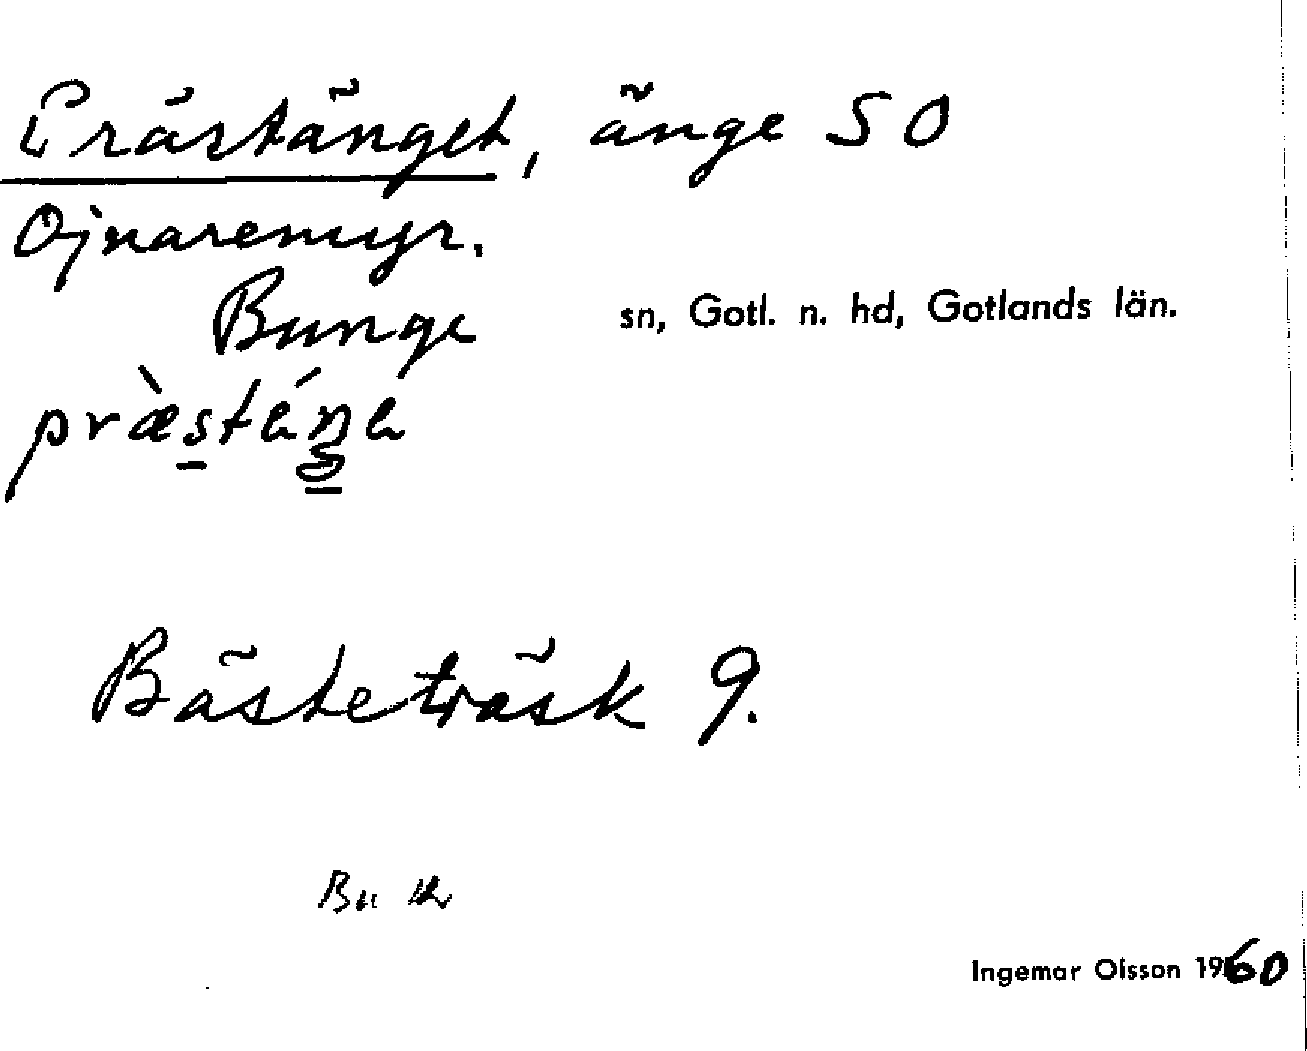 Prästänget, änge SO
Ojnaremyr.
Bunge sn, Gotl. n. hd, Gotlands län.
Bästeträsk 9.
Bu
Ingemar Olsson 1960